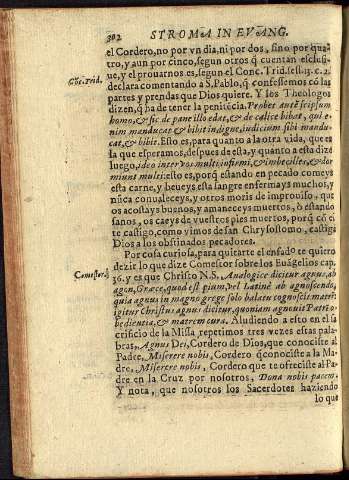 302 STROMA IN EVANG.
el Cordero, no por vn dia, ni por dos, sino por quatro,
y aun por cinco, segun otros q̃ cuentan esclusiue,
y el prouarnos es, segun el Conc. Trid. sess. 13. c. 2.
Cõc. Trid.
declara comentando a S. Pablo, q̃ confessemos cõ las
partes y prendas que Dios quiere. Y los Theologos
dizen, q̃ ha de tener la penitẽcia. Probet autẽ seipsum
homo, & sic de pane illo edat, & de calice bibat, qui enim
manducat & bibit indigne, iudicium sibi manducat,
& bibit. Esto es, para quanto a la otra vida, que es
la que esperamos, despues de esta, y quanto a esta dize
luego, ideo inter vos multi infirmi, & imbecilles, & dormiunt
multi: esto es, porq̃ estando en pecado comeys
esta carne, y beueys esta sangre enfermays muchos, y
nũca conualeceys, y otros moris de improuiso, que
os acostays buenos, y amaneceys muertos, ò estando
sanos, os caeys de vuestros pies muertos, porq̃ cõ este
te castigo, como vimos de san Chrysostomo, castiga
Dios a los obstinados pecadores.
Por cosa curiosa, para quitarte el enfado te quiero
dezir lo que dize Comestor sobre los Euãgelios cap.
Comestor.
36. y es que Christo N. S. Analogice dicitur agnus, ab
agon, Græce, quod est pium, vel Latinè ab agnoscendo,
quia agnus in magno grege solo balatu cognoscit matrẽ:
igitur Christus agnus dicitur, quoniam agnouit Patrẽ obedientia,
& matrem cura. Aludiendo a esto en el sacrificio
de la Missa repetimos tres vezes estas palabras,
Agnus Dei, Cordero de Dios, que conociste al
Padre, Miserere nobis, Cordero q̃ conociste a la Madre,
Miserere nobis, Cordero que te ofreciste al Padre
en la Cruz por nosotros, Dona nobis pacem.
Y nota, que nosotros los Sacerdotes haziendo
lo que